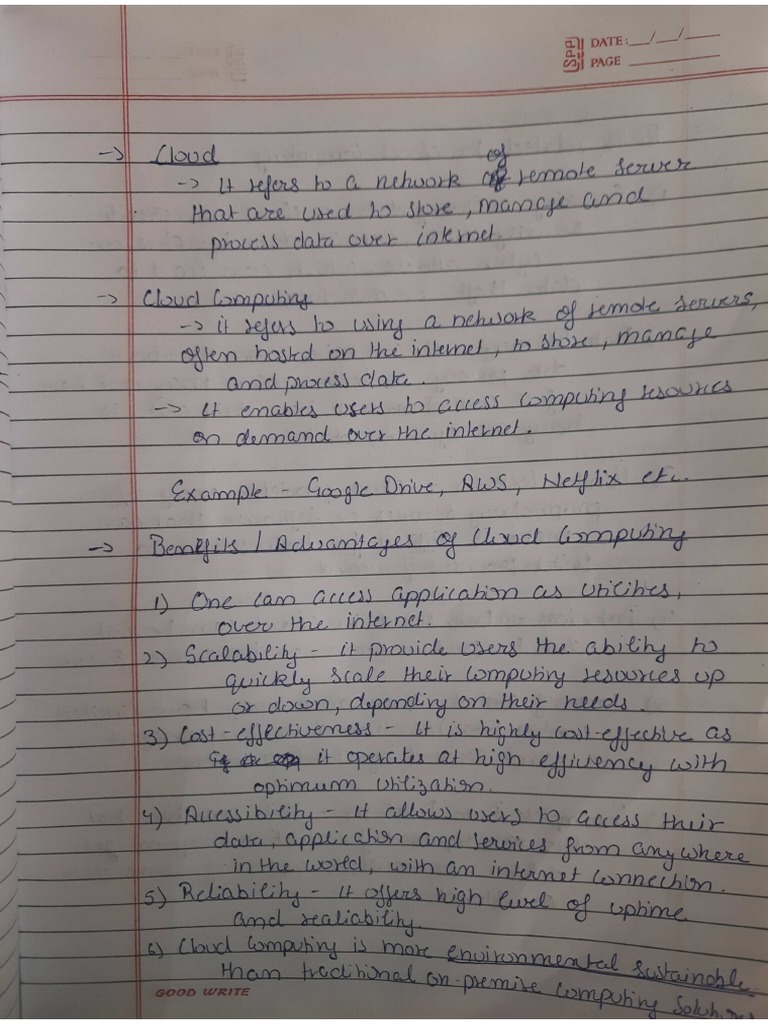 SPP DATE: __/__/__
PAGE
→ Cloud
→ It refers to a network of remote server
that are used to store, manage and
process data over internet.
→ Cloud Computing
→ it refers to using a network of remote servers,
often hosted on the internet, to store, manage
and process data.
→ It enables users to access computing resources
on demand over the internet.
Example - Google Drive, AWS, Netflix etc..
→ Benefits / Advantages of Cloud Computing
1) One can access application as utilities,
over the internet.
2) Scalability - it provide users the ability to
quickly scale their computing resources up
or down, depending on their needs.
3) Cost-effectiveness - It is highly cost-effective as
it operates at high efficiency with
optimum utilization.
4) Accessibility - It allows users to access their
data, application and services from anywhere
in the world, with an internet connection.
5) Reliability - it offers high level of uptime
and realiability.
6) Cloud Computing is more environmental sustainable
than traditional on-premise computing
GOOD WRITE